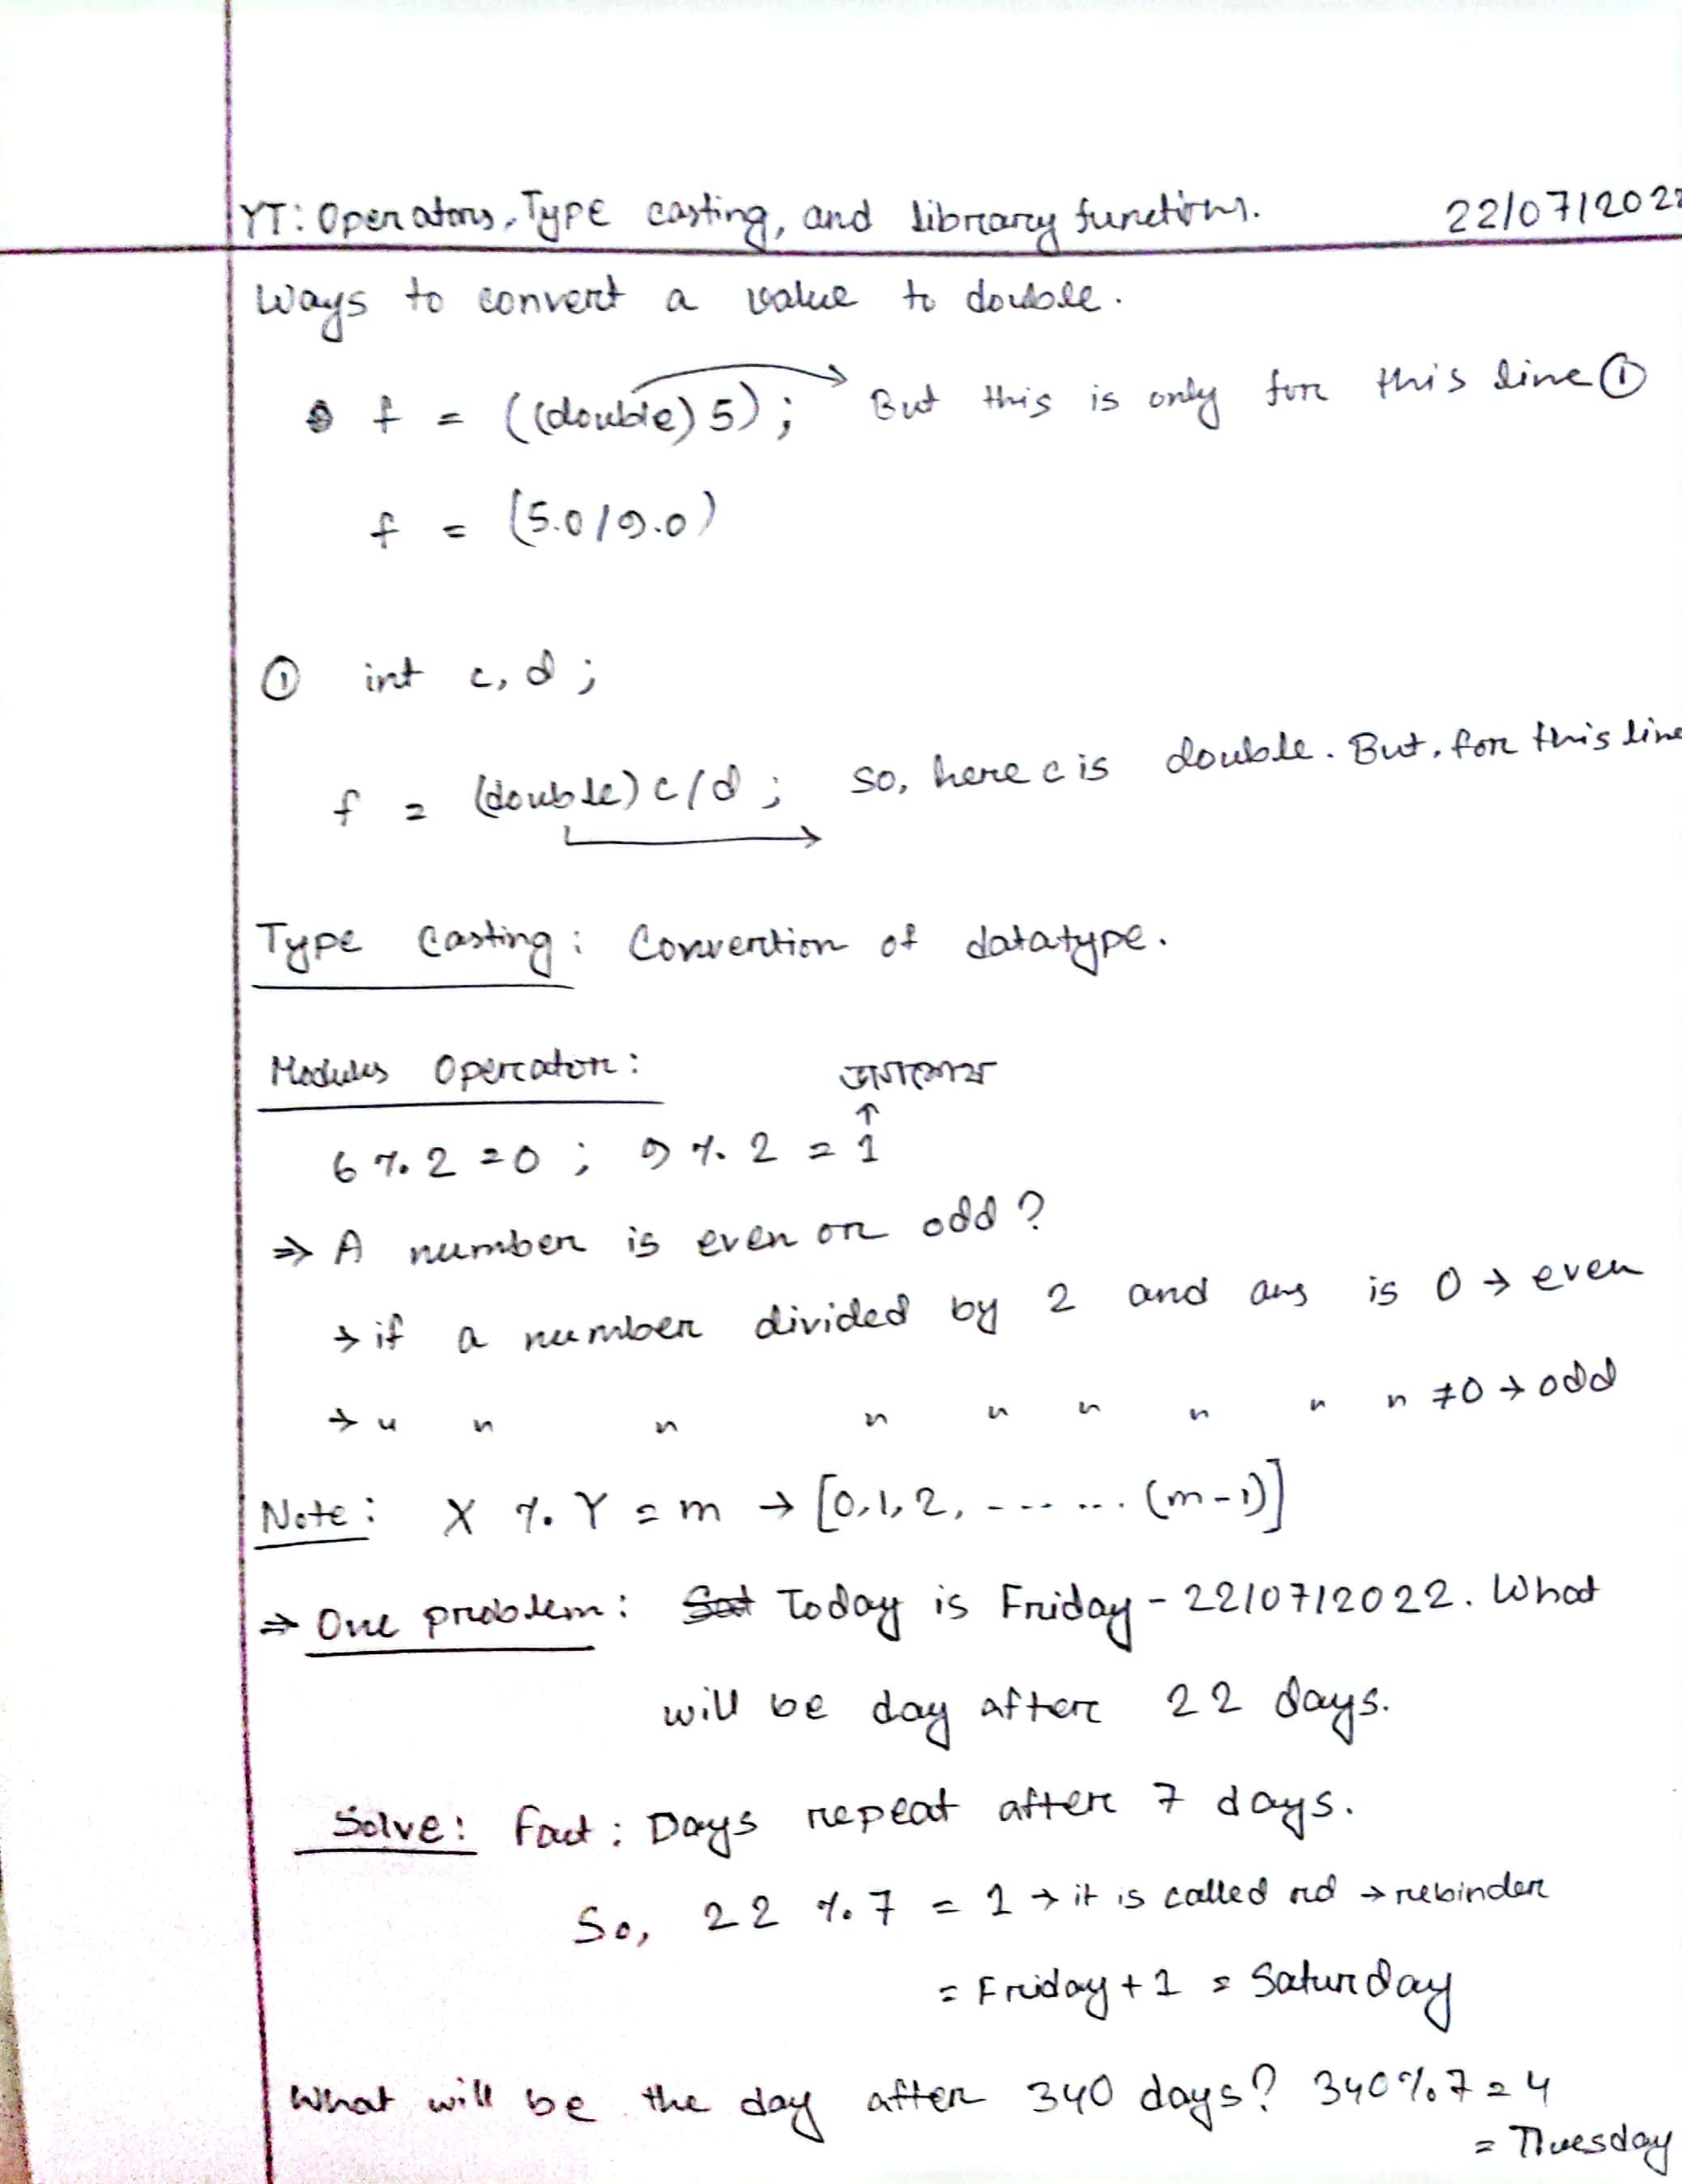 YT: Operators, Type casting, and library functions. 22/07/2022
Ways to convert a value to double.
f = ((double) 5); But this is only for this line ①
f = (5.0/9.0)
① int c, d ;
f = (double) c/d ; So, here c is double. But, for this line
Type Casting : Convertion of datatype.
Modulus Operator :
ভাগশেষ
↑
6 % 2 = 0 ; 9 % 2 = 1
⇒ A number is even or odd ?
→ if a number divided by 2 and ans is 0 → even
→ " " " " " " " " " ≠0 → odd
Note : X % Y = m → [0,1,2, ------ (m-1)]
⇒ One problem : Sat Today is Friday - 22/07/2022. What
will be day after 22 days.
Solve : Fact : Days repeat after 7 days.
So, 22 % 7 = 1 → it is called rd → rebinder
= Friday + 1 = Saturday
What will be the day after 340 days? 340 % 7 = 4
= Tuesday